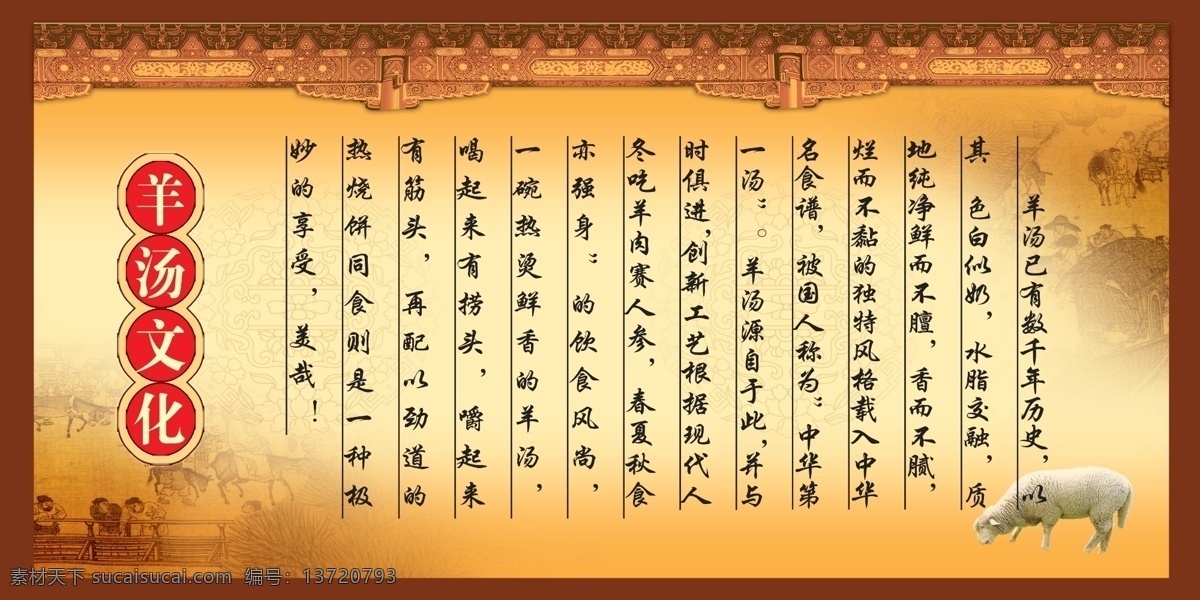 羊汤已有数千年历史，以
其 色白似奶，水脂交融，质
地纯净鲜而不膻，香而不腻，
烂而不黏的独特风格载入中华
名食谱，被国人称为“中华第
一汤”。羊汤源自于此，并与
时俱进，创新工艺根据现代人
冬吃羊肉赛人参，春夏秋食
亦强身”的饮食风尚，
一碗热烫鲜香的羊汤，
喝起来有捞头，嚼起来
有筋头，再配以劲道的
热烧饼同食则是一种极
妙的享受，美哉！
羊汤文化
素材天下 sucaisucai.com 编号：13720793